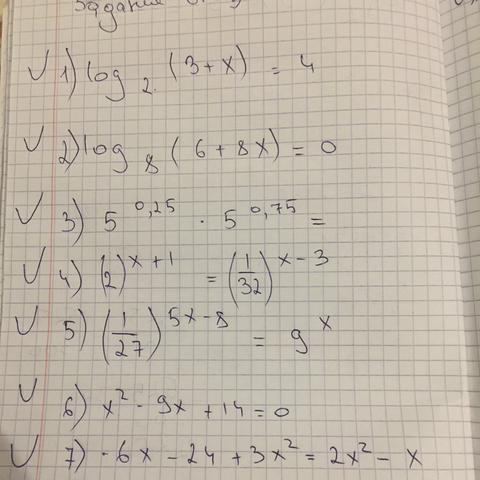 Задание
1) log₂ (3+x) = 4
2) log₈ (6+8x) = 0
3) 5^0,25 · 5^0,75 =
4) (2)^x+1 = (1/32)^x-3
5) (1/27)^5x-8 = 9^x
6) x² - 9x + 14 = 0
7) -6x - 24 + 3x² = 2x² - x